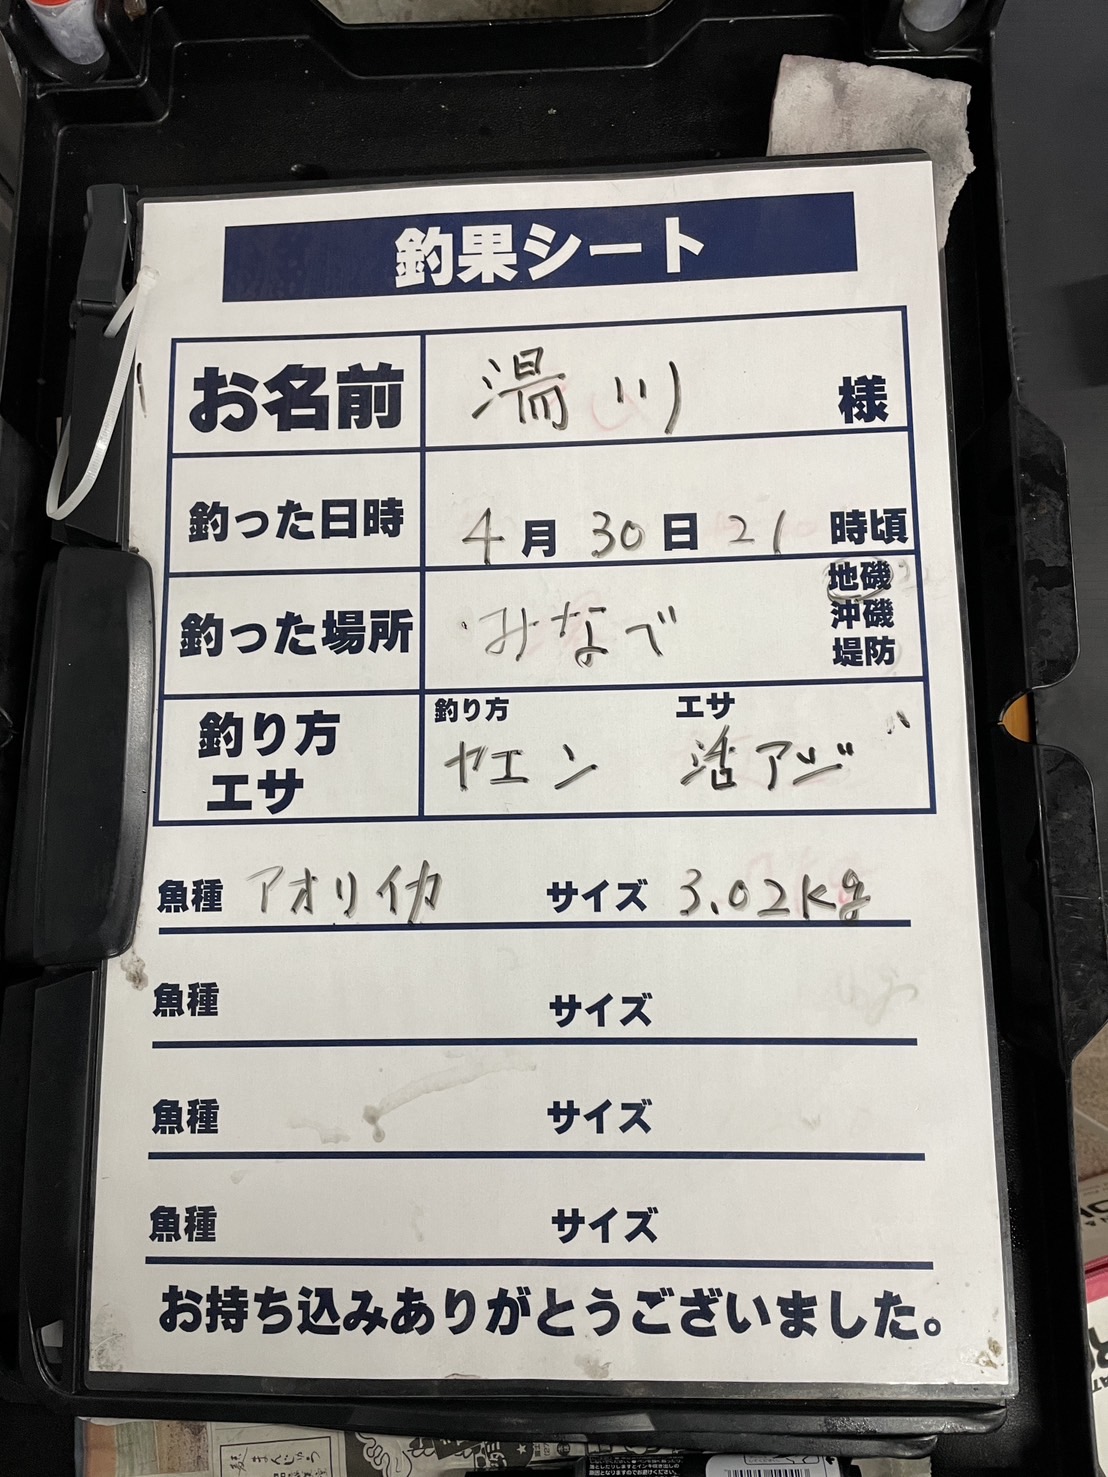 釣果シート
お名前 湯川 様
釣った日時 4月30日21時頃
釣った場所 みなべ 地磯
沖磯
堤防
釣り方 エサ
釣り方 ヤエン 活アジ
エサ
魚種 アオリイカ サイズ 3.02kg
魚種 サイズ
魚種 サイズ
魚種 サイズ
お持ち込みありがとうございました。